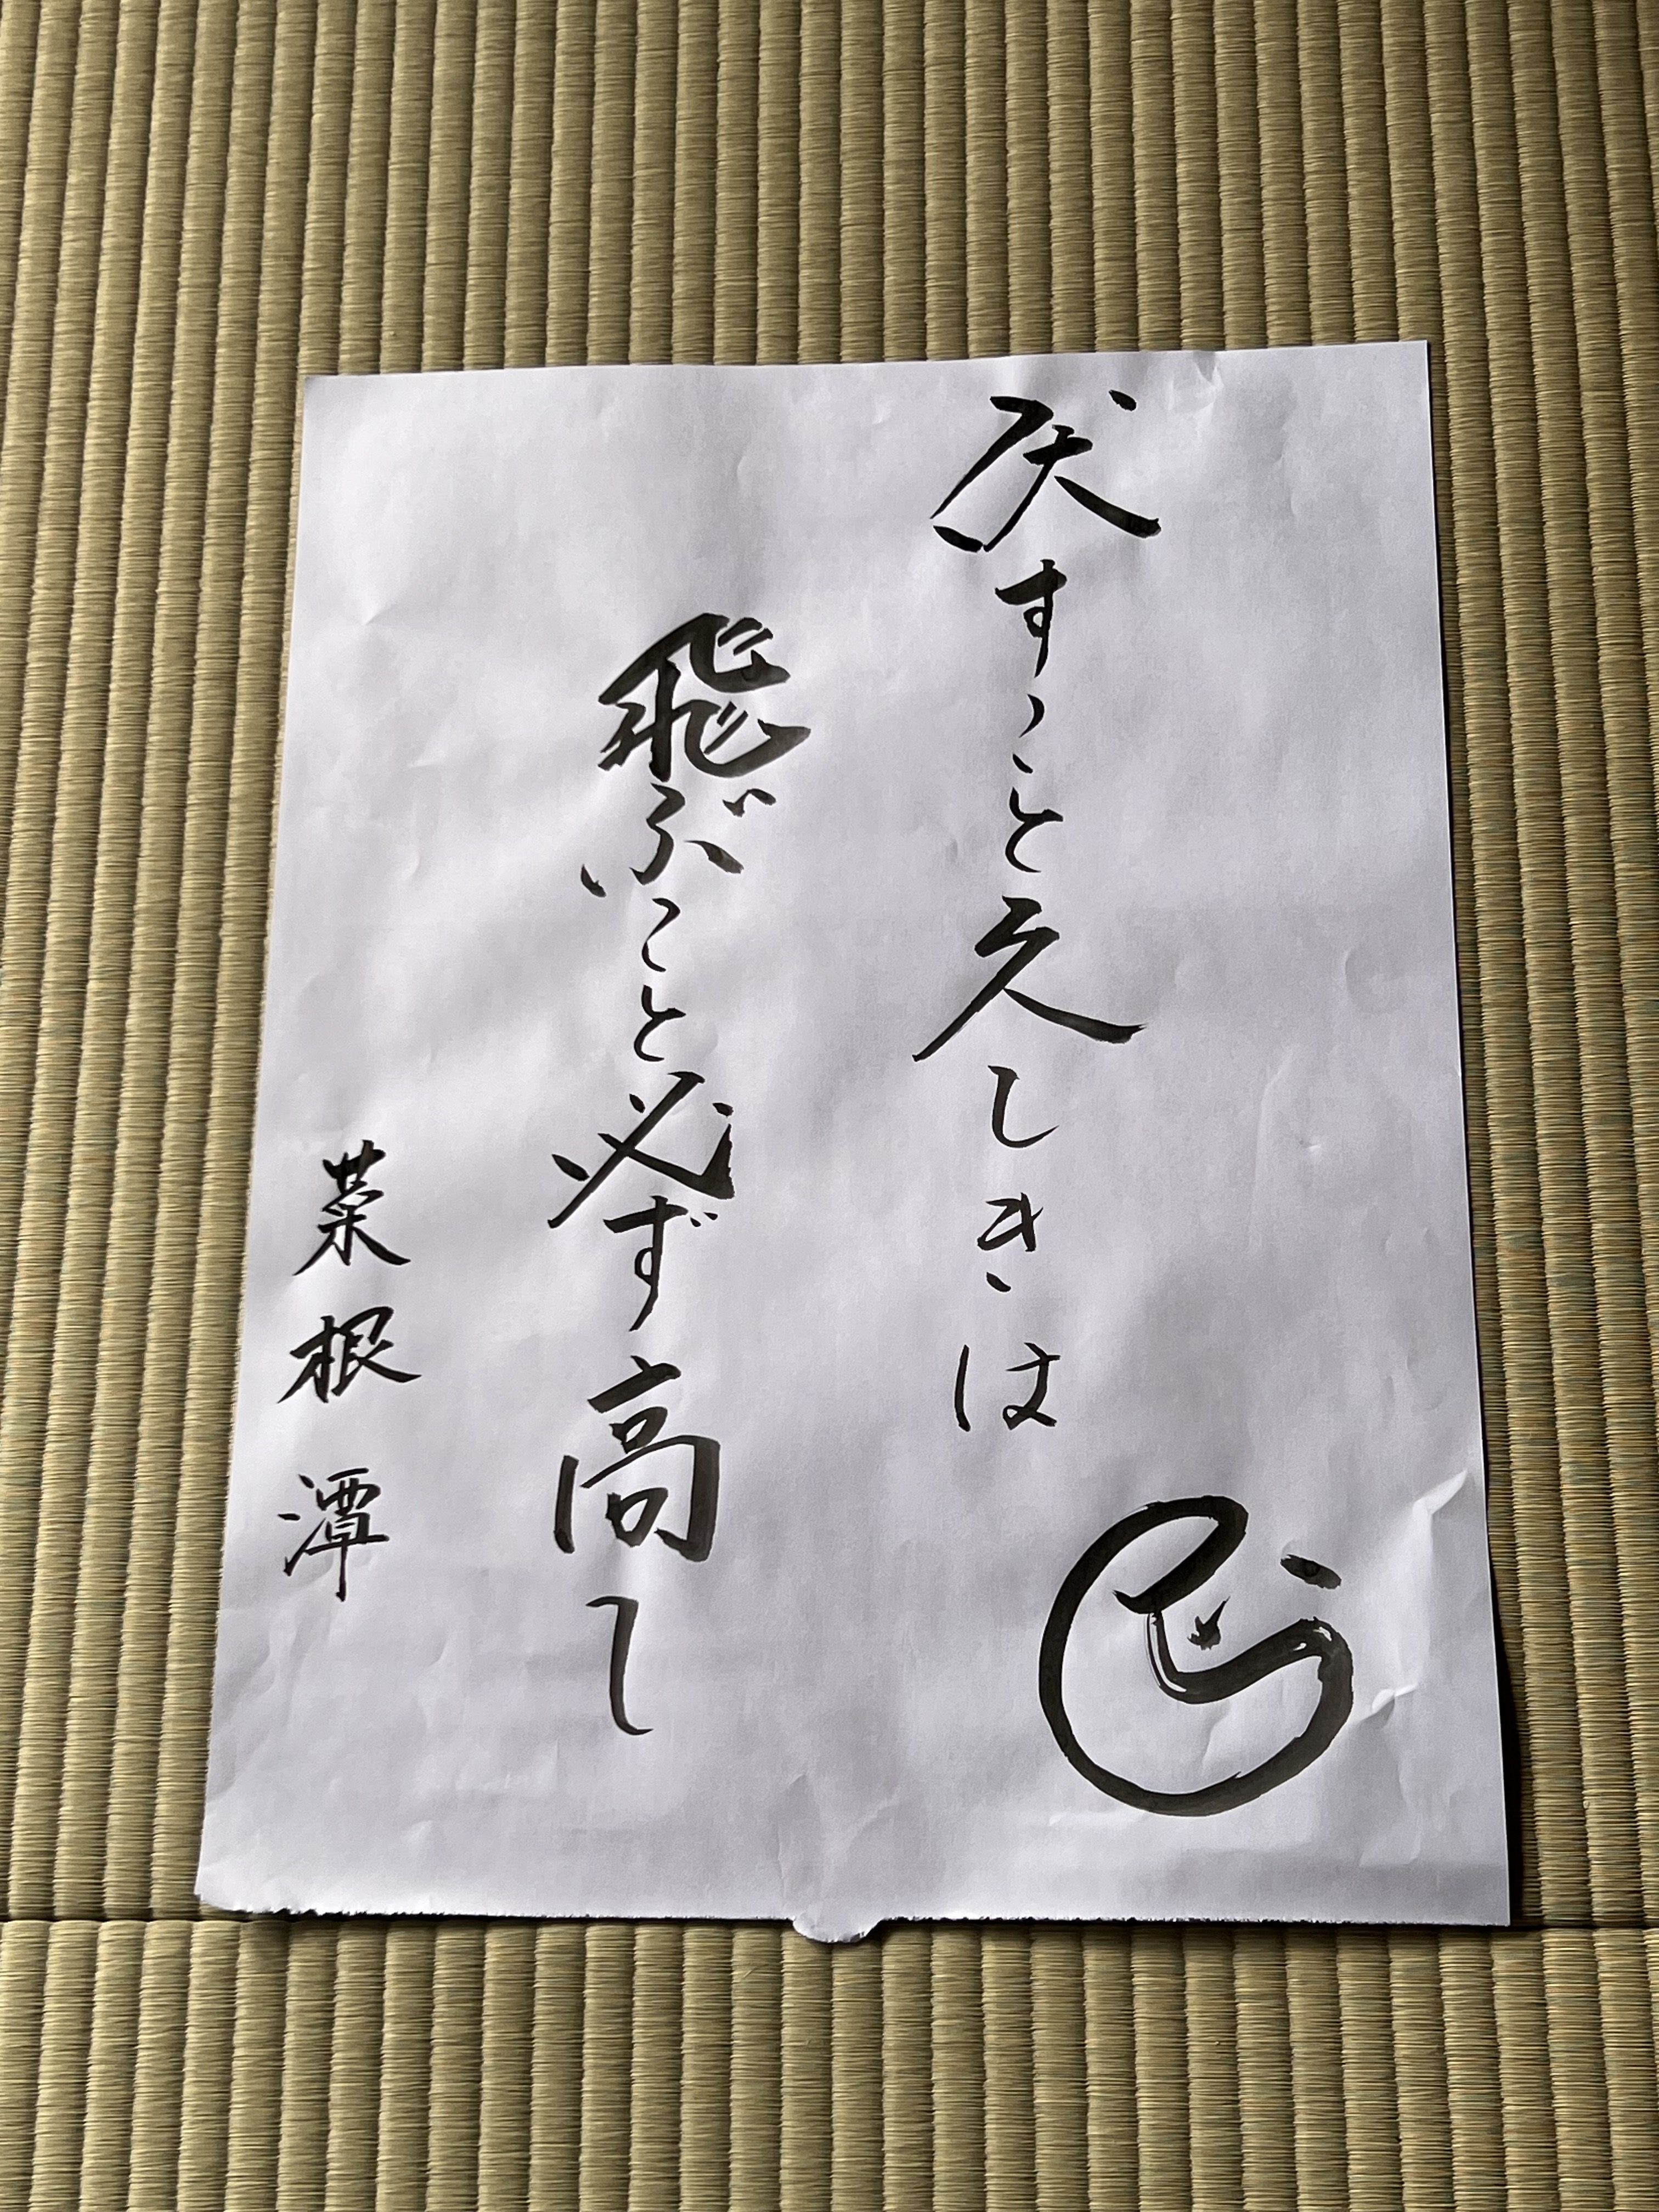 伏すこと久しきは
飛ぶこと必ず高し
菜根潭